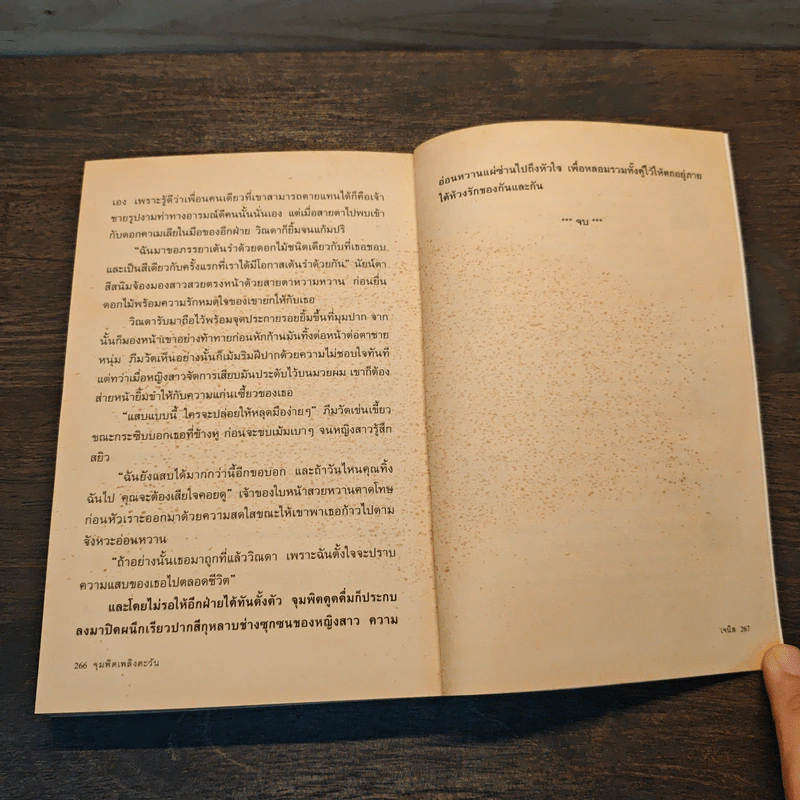 เอง เพราะรู้ดีว่าเพื่อนคนเดียวที่เขาสามารถตายแทนได้ก็คือเจ้า
ชายรูปงามท่าทางอารมณ์ดีคนนั้นนั่นเอง แต่เมื่อสายตาไปพบเข้า
กับดอกคาเมเลียในมือของอีกฝ่าย วิณดาก็ยิ้มจนแก้มปริ
“ฉันมาขอภรรยาเต้นรำด้วยดอกไม้ชนิดเดียวกับที่เธอชอบ
และเป็นสีเดียวกับครั้งแรกที่เราได้มีโอกาสเต้นรำด้วยกัน” นัยน์ตา
สีสนิมจ้องมองสาวสวยตรงหน้าด้วยสายตาหวามหวาน ก่อนยื่น
ดอกไม้พร้อมความรักหมดใจของเขายกให้กับเธอ
วิณดารับมาถือไว้พร้อมจุดประกายรอยยิ้มขึ้นที่มุมปาก จาก
นั้นก็มองหน้าเขาอย่างท้าทายก่อนหักก้านมันทิ้งต่อหน้าต่อตาชาย
หนุ่ม ภีมวัตเห็นอย่างนั้นก็เม้มริมฝีปากด้วยความไม่ชอบใจทันที
แต่ทว่าเมื่อหญิงสาวจัดการเสียบมันประดับไว้บนมวยผม เขาก็ต้อง
ส่ายหน้ายิ้มขำให้กับความแก่นเซี้ยวของเธอ
“แสบแบบนี้ ใครจะปล่อยให้หลุดมือง่ายๆ” ภีมวัตเข่นเขี้ยว
ขณะกระซิบบอกเธอที่ข้างหู ก่อนจะขบเม้มเบาๆ จนหญิงสาวรู้สึก
สยิว
“ฉันยังแสบได้มากกว่านี้อีกขอบอก และถ้าวันไหนคุณทิ้ง
ฉันไป คุณจะต้องเสียใจคอยดู” เจ้าของใบหน้าสวยหวานคาดโทษ
ก่อนหัวเราะออกมาด้วยความสดใสขณะให้เขาพาเธอก้าวไปตาม
จังหวะอ่อนหวาน
“ถ้าอย่างนั้นเธอมาถูกที่แล้ววิณดา เพราะฉันตั้งใจจะปราบ
ความแสบของเธอไปตลอดชีวิต”
และโดยไม่รอให้อีกฝ่ายได้ทันตั้งตัว จุมพิตดูดดื่มก็ประกบ
ลงมาปิดผนึกเรียวปากสีกุหลาบช่างซุกซนของหญิงสาว ความ
266 จุมพิตเพลิงตะวัน
อ่อนหวานแผ่ซ่านไปถึงหัวใจ เพื่อหลอมรวมทั้งคู่ไว้ให้ตกอยู่ภาย
ใต้ห้วงรักของกันและกัน
*** จบ ***
เจนิส 267